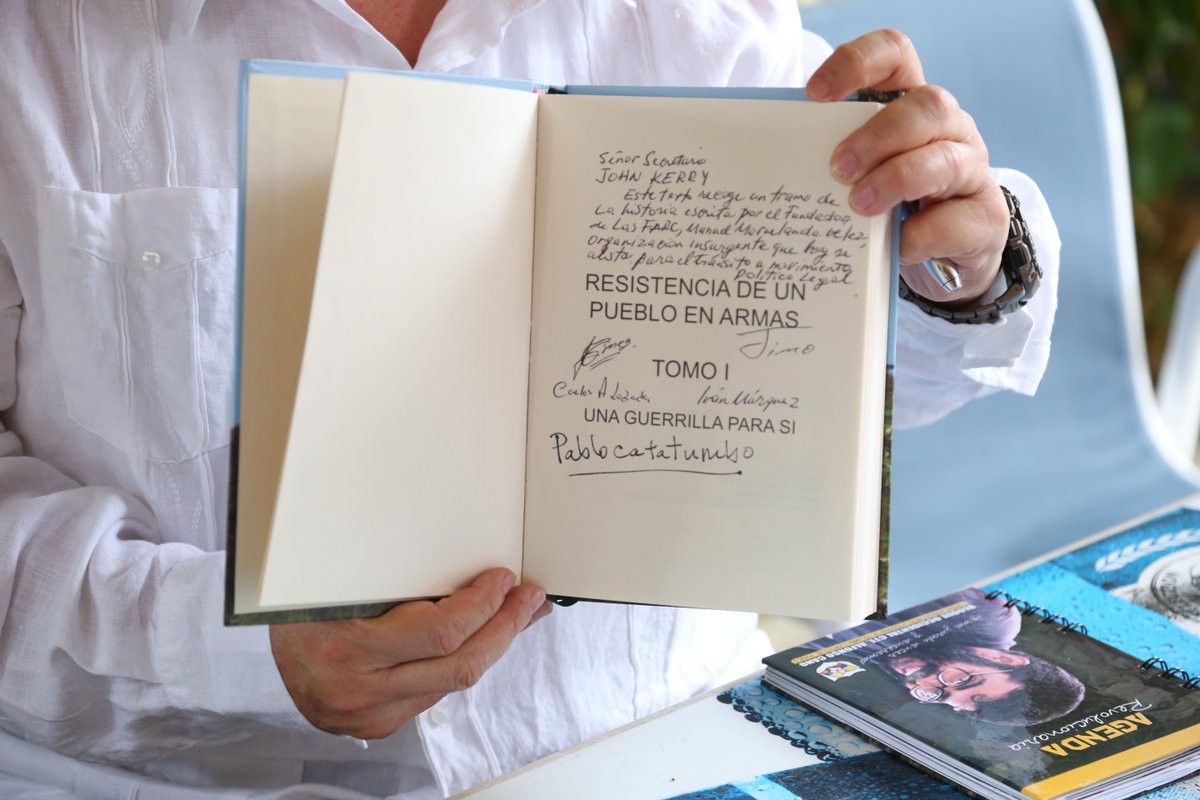 Señor Secretario
JOHN KERRY
Este texto recoge un tramo de
la historia escrita por el fundador
de las FARC, Manuel Marulanda Vélez,
organización insurgente que hoy se
alista para el tránsito a movimiento
político legal.
RESISTENCIA DE UN
PUEBLO EN ARMAS
Timo
TOMO I
Carlos A Lozada Iván Márquez
UNA GUERRILLA PARA SI
Pablo catatumbo
AGENDA
Revolucionaria
BLOQUE OCCIDENTAL CTE ALFONSO CANO